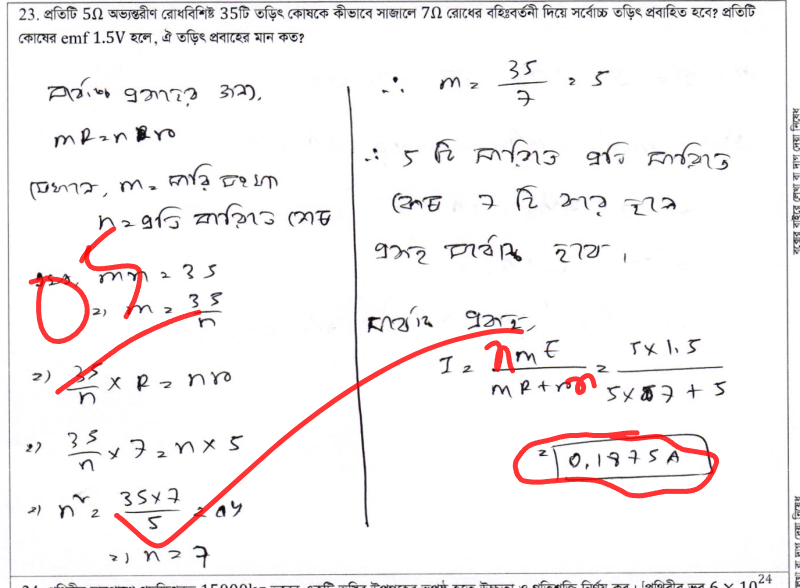 23. প্রতিটি 5Ω অভ্যন্তরীণ রোধবিশিষ্ট 35টি তড়িৎ কোষকে কীভাবে সাজালে 7Ω রোধের বহিঃবর্তনী দিয়ে সর্বোচ্চ তড়িৎ প্রবাহিত হবে? প্রতিটি
কোষের emf 1.5V হলে, ঐ তড়িৎ প্রবাহের মান কত?
সর্বোচ্চ প্রবাহের জন্য,
mR = nr
যেখানে, m = সারি সংখ্যা
n = প্রতি সারিতে কোষ
05
mn = 35
⇒ m = 35/n
⇒ 35/n × R = nr
⇒ 35/n × 7 = n × 5
⇒ n² = 35×7/5 = 49
⇒ n = 7
∴ m = 35/7 = 5
∴ 5 টি সারিতে প্রতি সারিতে
কোষ 7 টি করে হলে
প্রবাহ সর্বোচ্চ হবে।
সর্বোচ্চ প্রবাহ,
I = nmE/mR+rn = 5×1.5/5×7+5
= 0.1875A